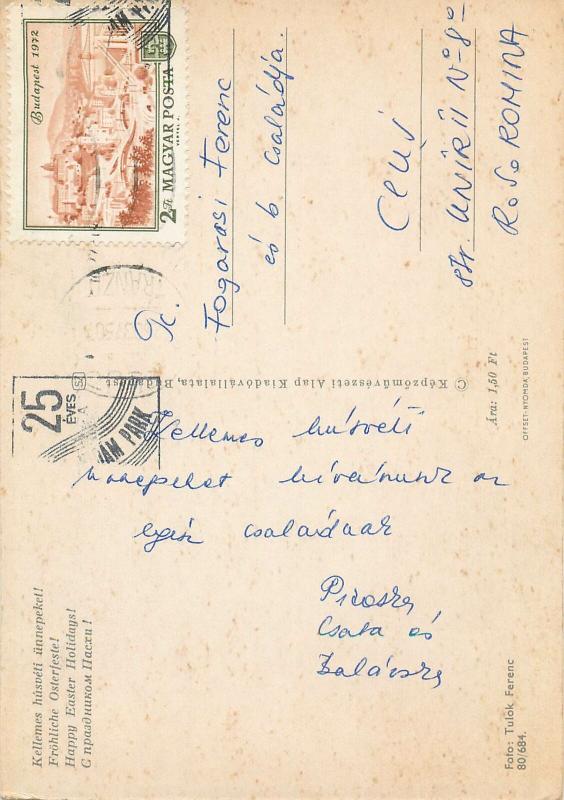 Budapest 1972
2 Ft MAGYAR POSTA
25
ÉVES
A
VIDÁM PARK
Fogarasi Ferenc
és b. családja.
Cluj
Str. UNIRII Nº 8º
R.S. ROMINA
Kellemes húsvéti
ünnepeket kívánunk az
egész családnak
Piroska
Csaba és
Balázska
Kellemes húsvéti ünnepeket!
Fröhliche Osterfeste!
Happy Easter Holidays!
С праздником Пасхи!
© Képzőművészeti Alap Kiadóvállalata, Budapest
Ára: 1,50 Ft
OFFSET-NYOMDA, BUDAPEST
Foto: Tulok Ferenc
80/684.